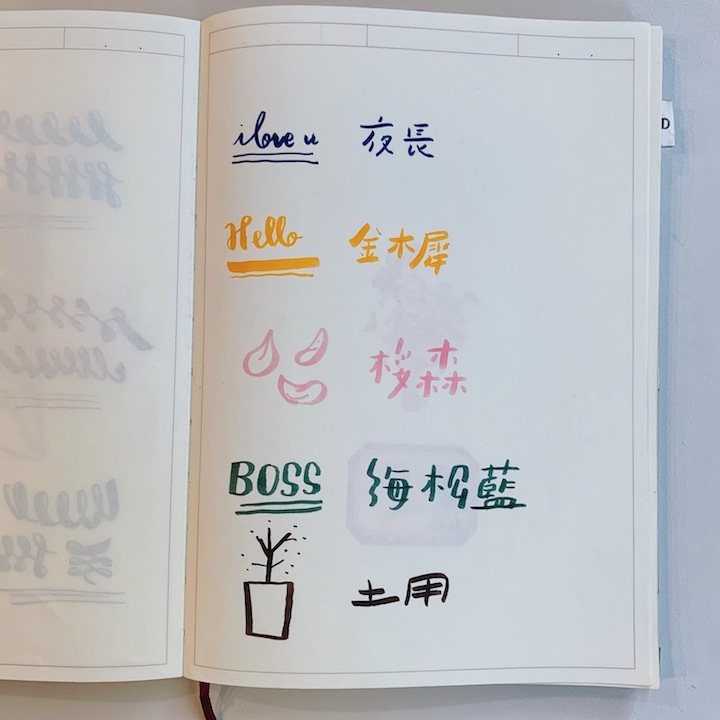 i love u 夜長
Hello 金木犀
桜森
BOSS 海松藍
土用
D